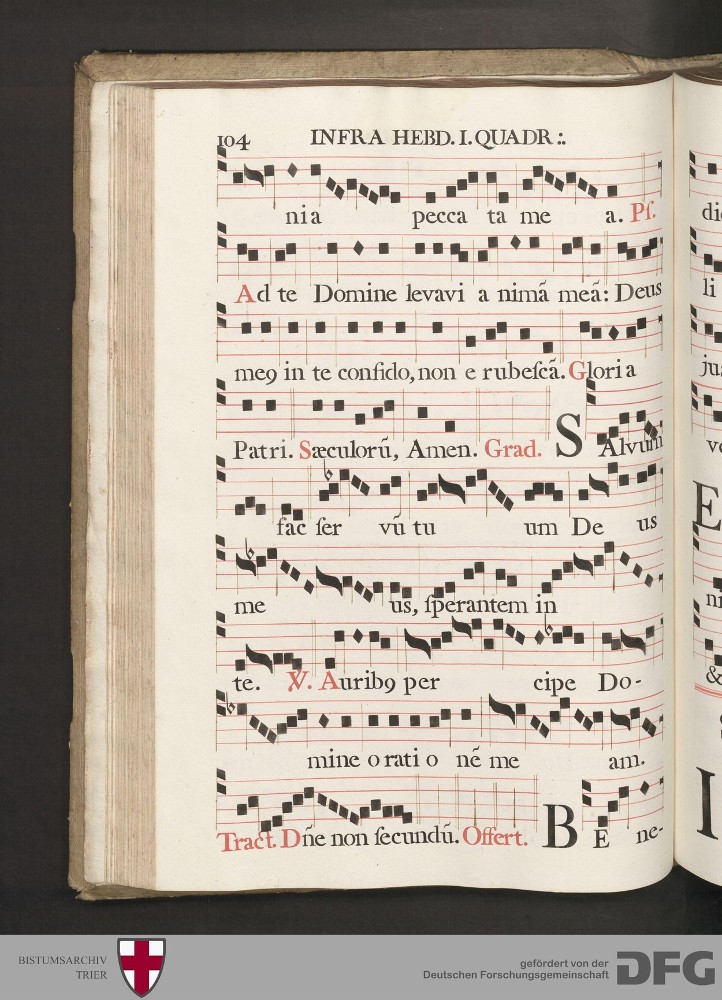 104 INFRA HEBD. I. QUADR :.
nia pecca ta me a. Pſ.
Ad te Domine levavi a nimã meã: Deus
meꝯ in te confido, non e rubeſcã. Gloria
Patri. Sæculorũ, Amen. Grad. S Alvum
fac ſer vũ tu um De us
me us, ſperantem in
te. ℣. Auribꝯ per cipe Do-
mine o rati o nẽ me am.
Tract. Dñe non ſecundũ. Offert. B E ne-
di
li
E
ni
&
I
BISTUMSARCHIV
TRIER
gefördert von der
Deutschen Forschungsgemeinschaft
DFG